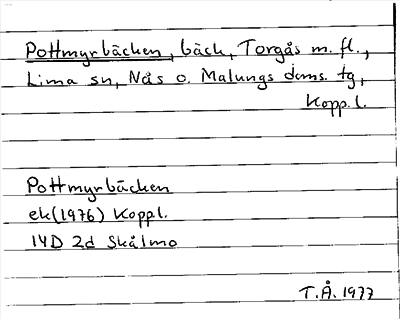 Pottmyrbäcken, bäck, Torgås m. fl.,
Lima sn, Nås o. Malungs dms. tg,
Kopp. l.
Pottmyrbäcken
ek(1976) Koppl.
14D 2d Skålmo
T.Å. 1977